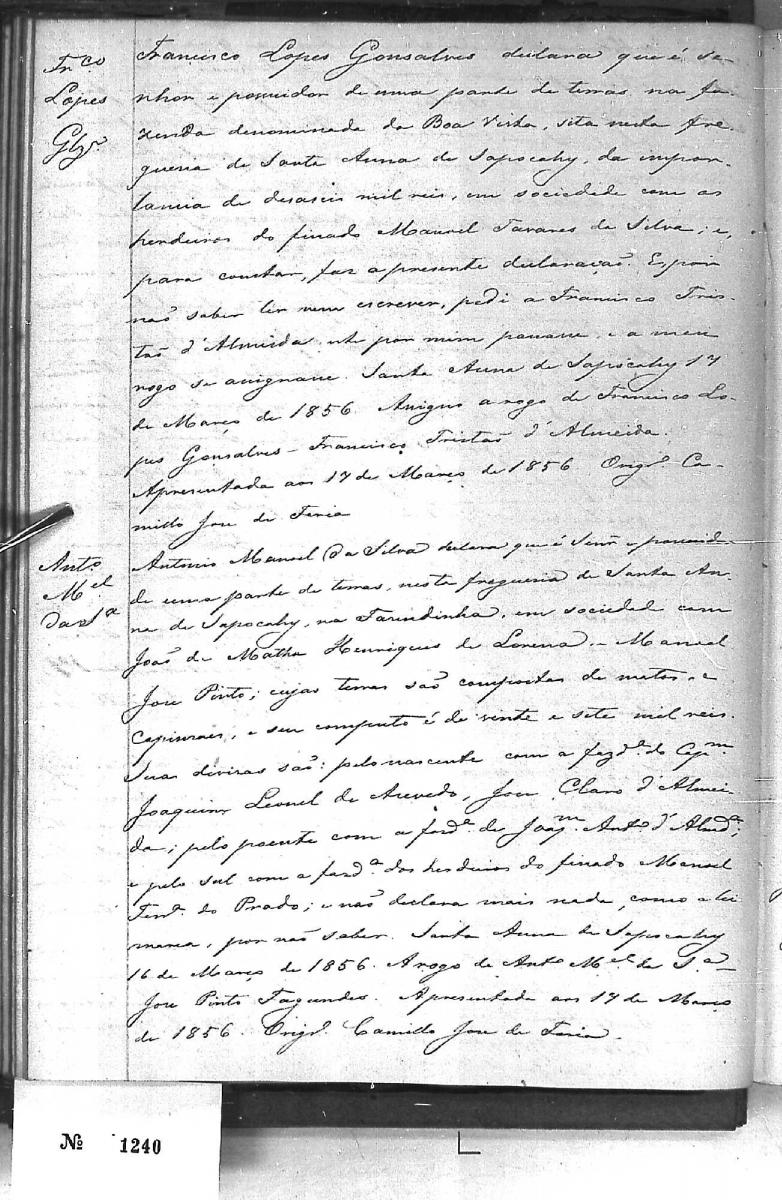 Fr.co
Lopes
Glz.
Francisco Lopes Gonsalves declara que é se-
nhor e possuidor de uma parte de terras na fa-
zenda denominada da Boa Vista, sita nesta fre-
guesia de Santa Anna de Sapocahy, da impor-
tancia de desaseis mil reis, em sociedade com os
herdeiros do finado Manoel Tavares da Silva; e,
para constar, faz a presente declaração. E, por
não saber ler nem escrever, pedi a Francisco Tris-
tão d'Almeida, este por mim passasse, e a meu
rogo se assignasse. Santa Anna de Sapocahy 17
de Março de 1856. Assigno a rogo de Francisco Lo-
pes Gonsalves - Francisco Tristão d'Almeida.
Apresentada aos 17 de Março de 1856. Orig. Ca-
millo Jose de Faria
Ant.o
M.el
da S.a
Antonio Manoel da Silva declara que é Senr e possuidor
de uma parte de terras, nesta freguesia de Santa An-
na de Sapocahy, na Fasendinha, em sociedade com
João de Matha Henriques de Lorena, e Manoel
Jose Pinto; cujas terras são compostas de matos, e
capinzaes, e seu computo é de vinte e sete mil reis.
Suas divisas são: pelo nascente com a fazd.a do Cap.m
Joaquim Leonel de Azevedo, Jose Claro d'Almei-
da; pelo poente com a fazd.a de Joaq.m Anto d'Almd.a;
e pelo sul com a fazd.a dos herdeiros do finado Manoel
Fern. do Prado; e não declara mais nada, como a lei
marca, por não saber. Santa Anna de Sapocahy
16 de Março de 1856. A rogo de Anto M.el da S.a
Jose Pinto Fagundes. Apresentada aos 17 de Março
de 1856. Orig. Camillo Jose de Faria.
№ 1240